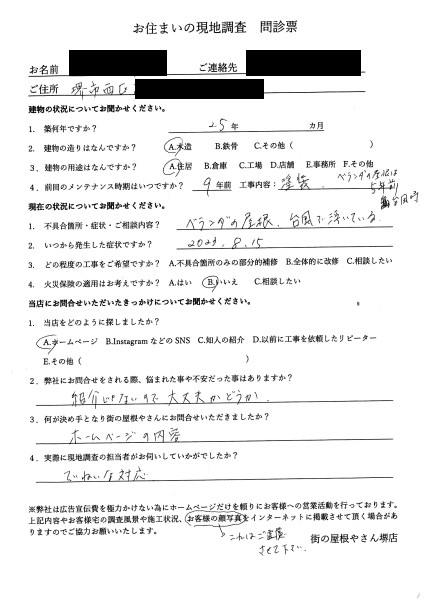 お住まいの現地調査 問診票
お名前 ご連絡先
ご住所 堺市西区
建物の状況についてお聞かせください。
1. 築何年ですか？ 25 年 カ月
2. 建物の造りはなんですか？ A.木造 B.鉄骨 C.その他（ ）
3. 建物の用途はなんですか？ A.住居 B.倉庫 C.工場 D.店舗 E.事務所 F.その他
4. 前回のメンテナンス時期はいつですか？ 9 年前 工事内容： 塗装、 ベランダの屋根は
5年前
台風時
現在の状況についてお聞かせください。
1. 不具合箇所・症状・ご相談内容？ ベランダの屋根、台風で浮いている。
2. いつから発生した症状ですか？ 2023.8.15
3. どの程度の工事をご希望ですか？ A.不具合箇所のみの部分的補修 B.全体的に改修 C.相談したい
4. 火災保険の適用はお考えですか？ A.はい B.いいえ C.相談したい
当店にお問合せいただいたきっかけについてお聞かせください。
1. 当店をどのように探しましたか？
A.ホームページ B.Instagram などの SNS C.知人の紹介 D.以前に工事を依頼したリピーター
E.その他（ ）
2. 弊社にお問合せをされる際、悩まれた事や不安だった事はありますか？
紹介じゃないので大丈夫かどうか。
3. 何が決め手となり街の屋根やさんにお問合せいただきましたか？
ホームページの内容
4. 実際に現地調査の担当者がお伺いしていかがでしたか？
ていねいな対応
※弊社は広告宣伝費を極力かけない為にホームページだけを頼りにお客様への営業活動を行っております。
上記内容やお客様宅の調査風景や施工状況、お客様の顔写真をインターネットに掲載させて頂く場合があ
りますのでご協力お願いいたします。
これはご遠慮
させて下さい 街の屋根やさん堺店